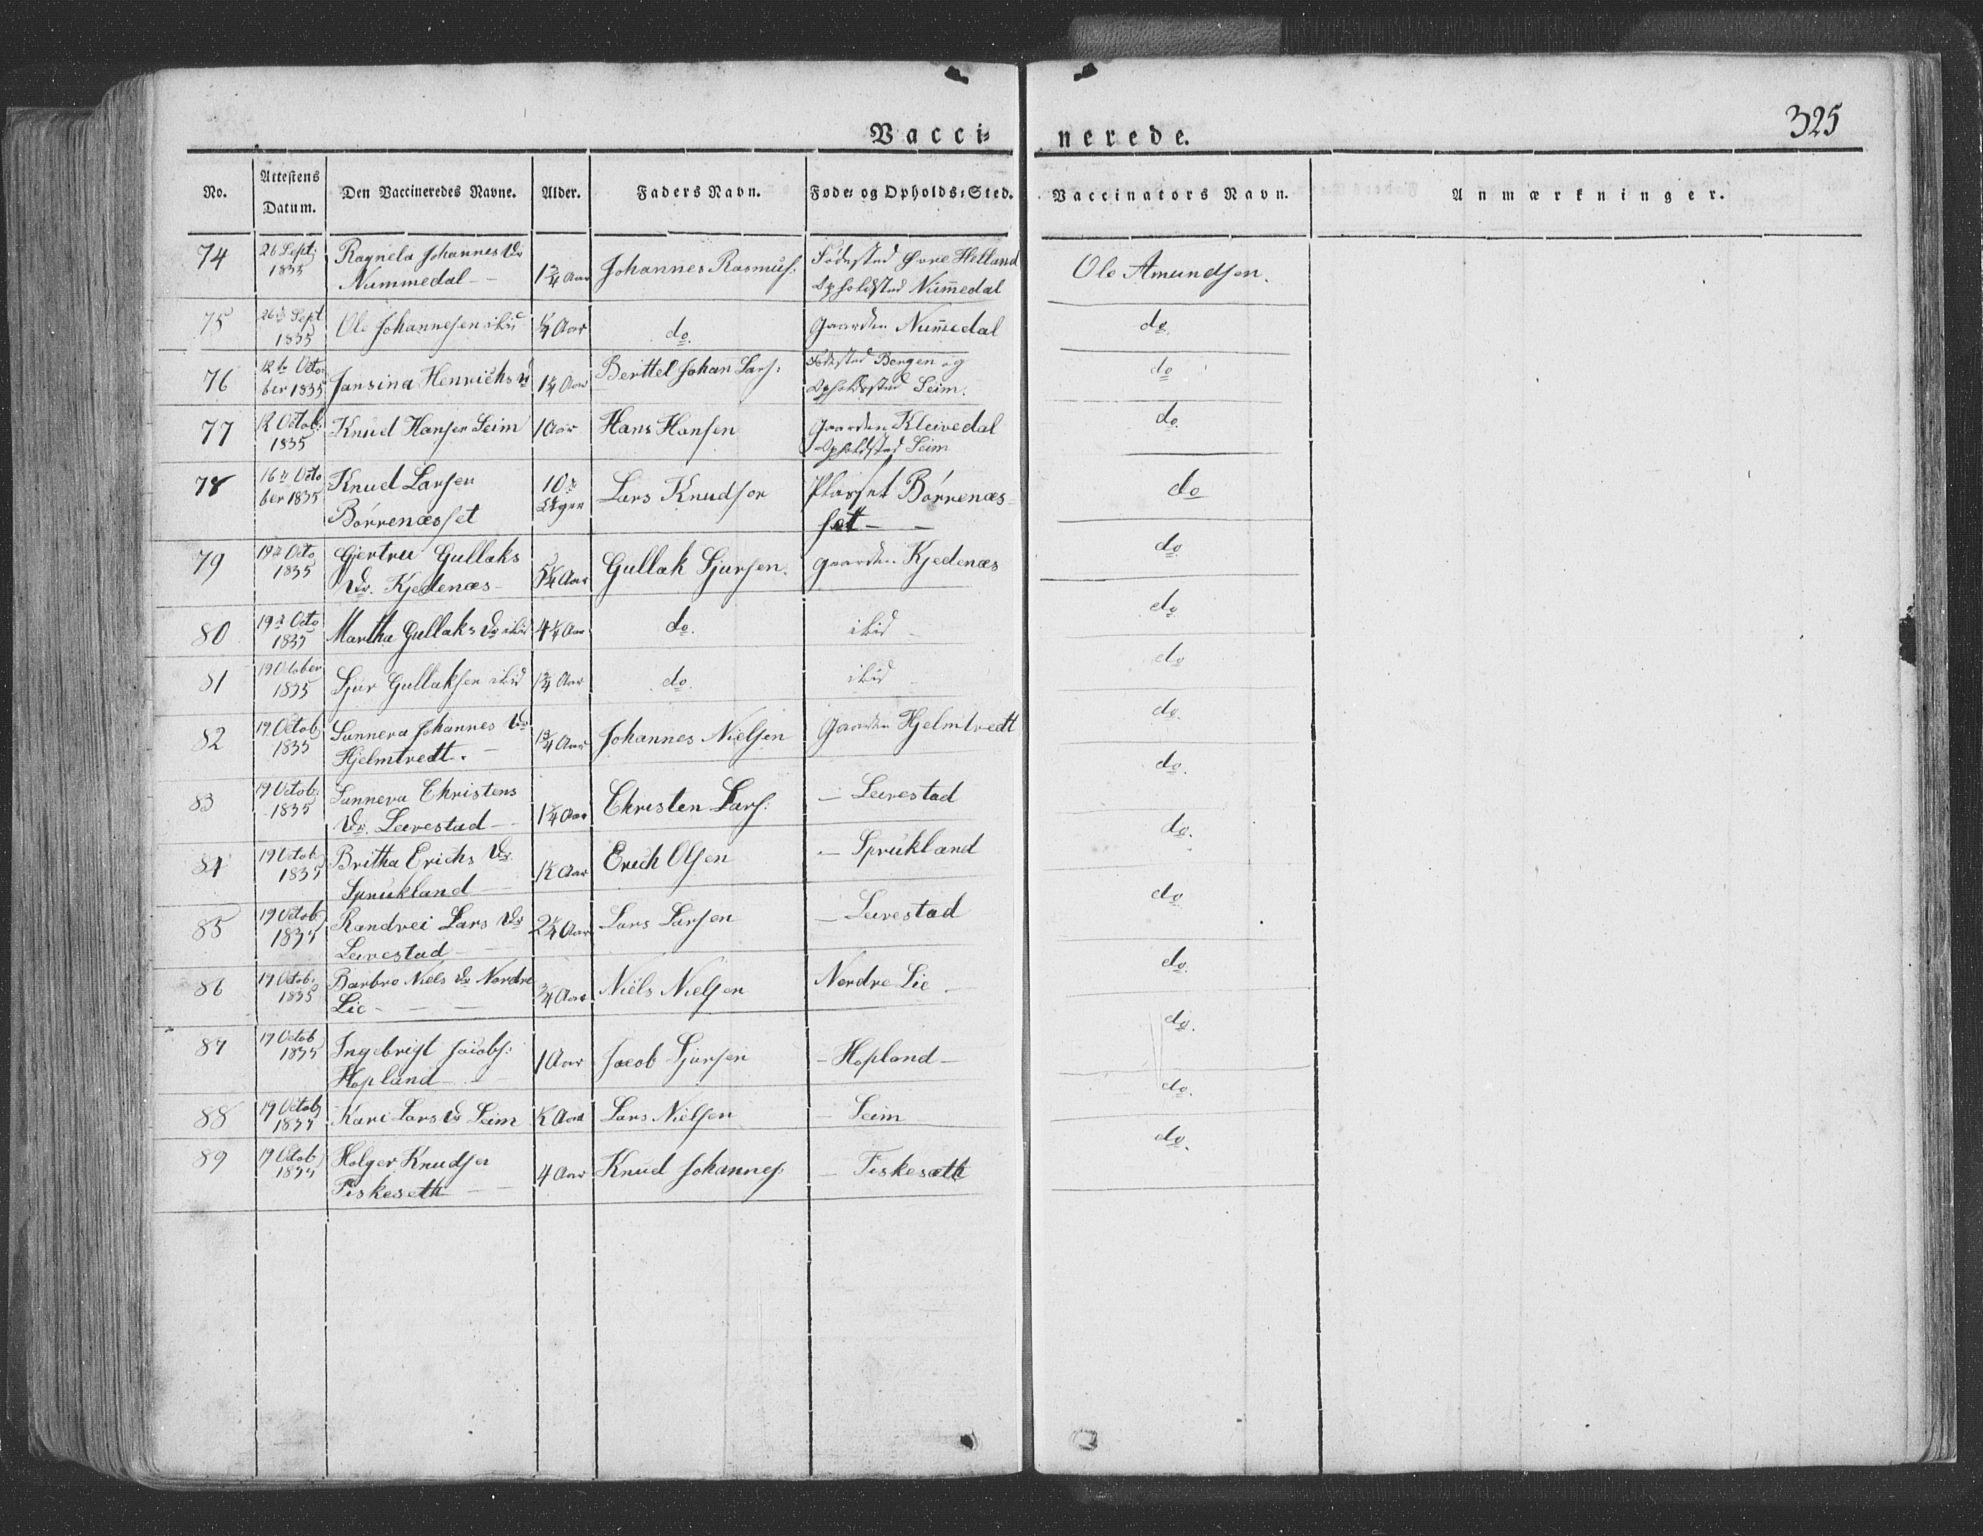 325
Vacci= nerede.
No. Attestens Datum. Den Vaccineredes Navne. Alder. Faders Navn. Føde= og Opholds=Sted. Vaccinators Navn. Anmærkninger.
74 26 Sept 1835 Ragnela Johannes Dr Nummedal 1 3/4 Aar Johannes Rasmus: Fødested Øvre Helland Opholdsted Num̅edal Ole Amundsen.
75 26 Sept 1835 Ole Johannesen ibid 1/4 Aar do. Gaarden Num̅edal do.
76 12te October 1835 Jansina Henrichs Dr 1 1/4 Aar Berttel Johan Lars: Fødested Bergen og Opholdssted Seim. do
77 12 Octob: 1835 Knud Hansen Seim 1 Aar Hans Hansen Gaarden Kleivedal Opholdsted Seim do.
78 16 October 1835 Knud Larsen Börrenæsset 10 Uger Lars Knudsen Pladset Börrenæsset do
79 19 Octo 1835 Gjertru Gullaks Dr. Kjedenæs Aar Gullak Sjursen. Gaarden Kjedenæs do.
80 19 Octo 1835 Martha Gullaks Dr ibid 4 1/4 Aar do. ibid do
81 19 October 1835 Sjur Gullaksen ibid 1 3/4 Aar do. ibid do
82 19 Octob 1835 Sunneva Johannes Dr Hjelmtvedt. 1 3/4 Aar Johannes Nielsen Gaarden Hjelmtvedt do.
83 19 Octob. 1835 Sunneva Christens Dr. Leirestad 1 1/4 Aar Christen Lars: — Leirestad do.
84 19 Octob 1835 Britha Erichs Dr Sprukland 1/2 Aar Erich Olsen — Sprukland do.
85 19 Octob 1835 Randvei Lars Dr Leirestad 2 1/4 Aar Lars Larsen — Leirestad do.
86 19 Octob. 1835 Barbro Niels Dr Nordre Lie 3/4 Aar Niels Nielsen Nordre Lie do.
87 19 Octob 1835 Ingebrigt Jacobs: Hopland 1 Aar Jacob Sjursen — Hopland — do.
88 19 Octob 1835 Kari Lars Dr Seim 1/2 Aar Lars Nielsen — Seim do.
89 19 Octob 1835 Holger Knudsen Fiskeseth 4 Aar Knud Johannes: — Fiskeseth do.